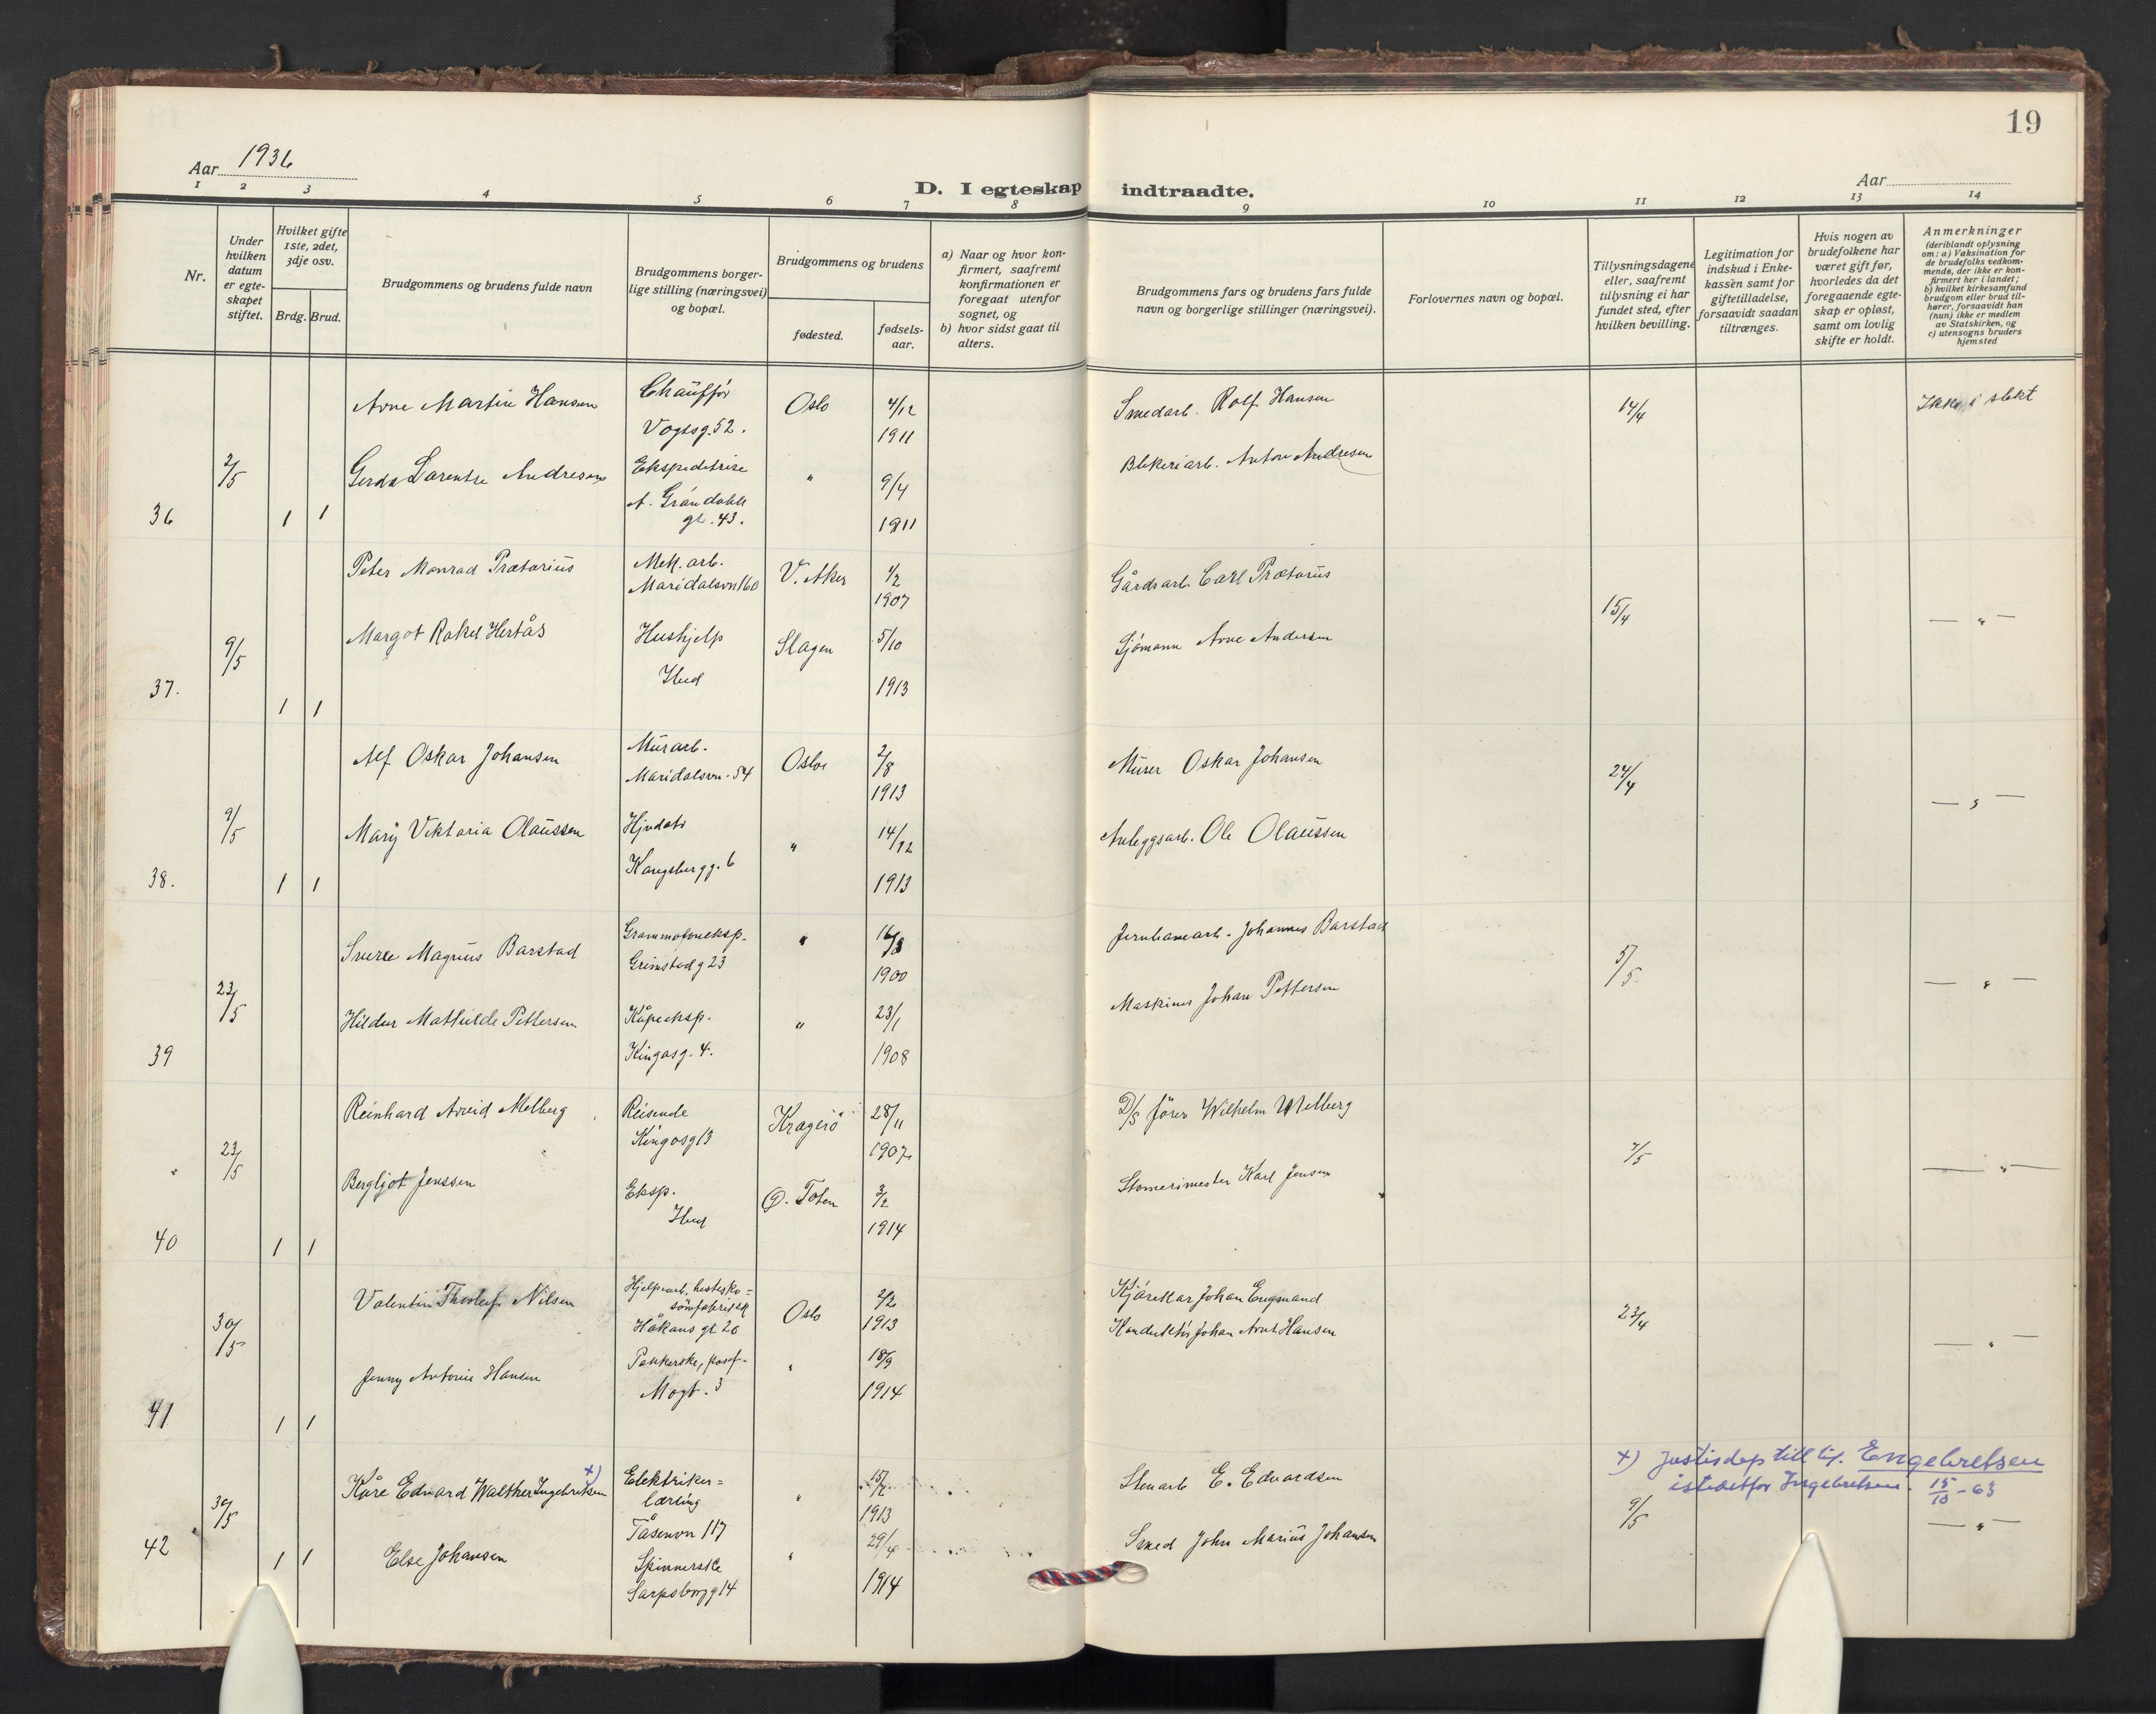 19
Aar 1936
Aar
D. I egteskap indtraadte.
1 2 3 4 5 6 7 8 9 10 11 12 13 14
Nr.
Under hvilken datum er egteskapet stiftet.
Hvilket gifte 1ste, 2det, 3dje osv.
Brdg. Brud.
Brudgommens og brudens fulde navn
Brudgommens borgerlige stilling (næringsvei) og bopæl.
Brudgommens og brudens
fødested.
fødselsaar.
a) Naar og hvor konfirmert, saafremt konfirmationen er foregaat utenfor sognet, og
b) hvor sidst gaat til alters.
Brudgommens fars og brudens fars fulde navn og borgerlige stillinger (næringsvei).
Forlovernes navn og bopæl.
Tillysningsdagene eller, saafremt tillysning ei har fundet sted, efter hvilken bevilling.
Legitimation for indskud i Enkekassen samt for giftetilladelse, forsaavidt saadan tiltrænges.
Hvis nogen av brudefolkene har været gift før, hvorledes da det foregaaende egteskap er opløst, samt om lovlig skifte er holdt.
Anmerkninger
(deriblandt oplysning om: a) Vaksination for de brudefolks vedkommende, der ikke er konfirmert her i landet; b) hvilket kirkesamfund brudgom eller brud tilhører, forsaavidt han (hun) ikke er medlem av Statskirken, og c) utensogns bruders hjemsted
Arne Martin Hansen Chauffør Oslo 4/12 Smedarb. Rolf Hansen 14/4 Ikke i slekt
Vogtsg. 52. 1911
2/5 Gerda Lorentse Andresen Ekspeditrise " 9/4 Blikeriarb. Anton Andresen
A. Grøndahls
36 1 1 gt. 43. 1911
Peter Monrad Prætorius Mek. arb. V. Aker 4/2 Gårdsarb. Carl Prætorius 15/4 — " —
Maridalsvn 160 1907
9/5 Margot Rakel Hertås Hushjelp Slagen 5/10 Sjømann Arne Andersen
37. 1 1 Ibid 1913
Alf Oskar Johansen Murarb. Oslo 2/8 Murer Oskar Johansen 24/4 — " —
Maridalsvn. 54 1913
9/5 Mary Viktoria Olaussen " 14/12 Anleggsarb. Ole Olaussen
38. 1 1 Kongsbergg. 6 1913
Sverre Magnus Barstad Grammofoneksp. " 16/8 Jernbanearb. Johannes Barstad 5/5 — " —
Grimstadg 23 1900
23/5 Hildur Mathilde Pettersen Kåpeeksp. " 23/1 Maskinist Johan Pettersen
39 Kingosg. 4. 1908
Reinhard Arvid Melberg Reisende Kragerø 28/11 D/S fører Wilhelm Melberg 7/5 — " —
Kingosg 13 1907
23/5 Bergljot Jenssen Eksp. Ø. Toten 3/2 Karl Jensen
40 1 1 Ibid 1914
Valentin Thorleif Nilsen Hjelpearb. hestesko- Oslo 2/2 Kjørekar Johan Engmand 23/4 — " —
sømfabrikk
30/5 Håkons gt 20 1913 Konduktør Johan Arnt Hansen
Jenny Antonie Hansen Pakkerske, " 18/9
41 1 1 Mogt. 3 1914
x) Justisdep till til Engebretsen
istedetfor Ingebretsen. 15/10 - 63
Kåre Edvard Walther Ingebretsen x) Elektriker- " 15/7 Stenarb E. Edvardsen 9/5 — " —
lærling 1913
30/5 Tåsenvn 117
42 1 1 Else Johansen Spinnerske " 29/4 Smed John Marius Johansen
Sarpsborgg 14 1914